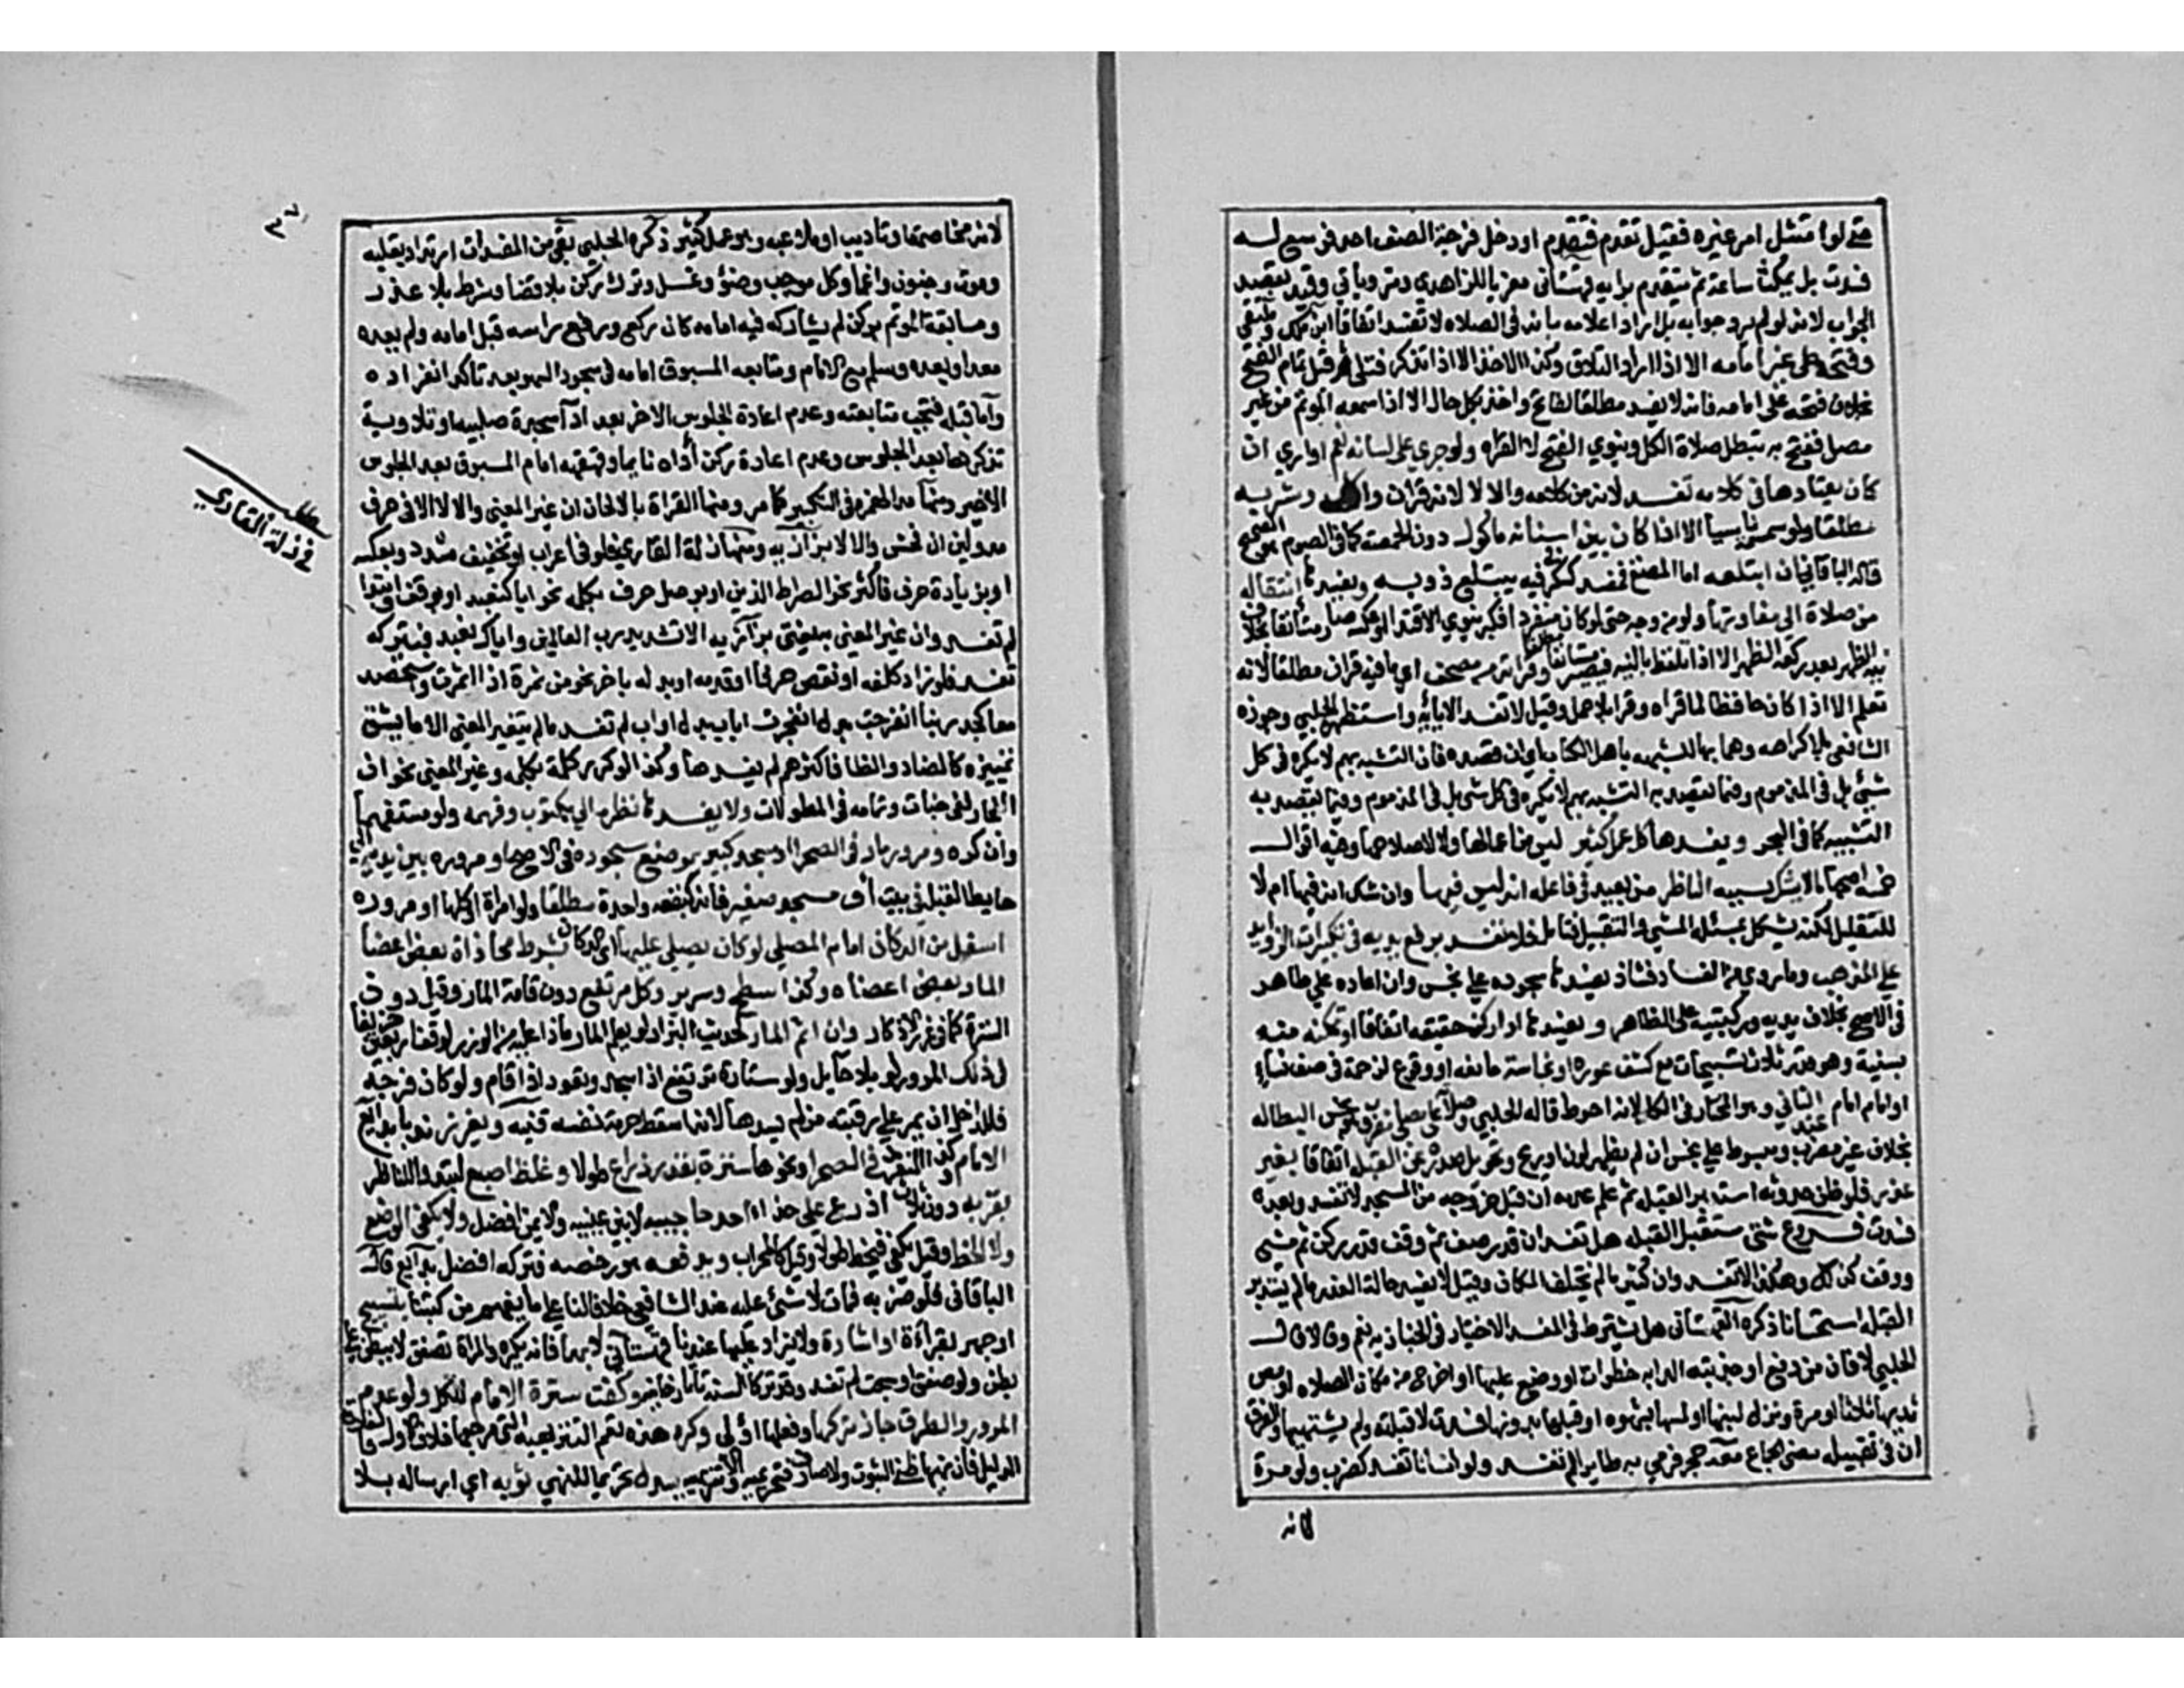 حتى لو امتثل امر غيره فقيل تقدم فتقدم او دخل فرجة الصف احد فوسع له
فسدت بل يمكث ساعة ثم يتقدم برايه قهستاني معزيا للزاهدي ومر وياتي وقيد بقصد
الجواب لانه لو لم يرد جوابه بل اراد اعلامه بانه في الصلاه لا تفسد اتفاقا ابن ملك وملتقى
وفتحه على غير امامه الا اذا اراد التلاوة وكذا الاخذ الا اذا تذكر فتلى قبل تمام الفتح
بخلاف فتحه على امامه فانه لا يفسد مطلقا لفاتح واخذ بكل حال الا اذا سمعه المؤتم من غير
مصل ففتح به تبطل صلاة الكل وينوي الفتح لا القراه ولو جرى على لسانه نعم او اري ان
كان يعتادها في كلامه تفسد لانه من كلامه والا لا لانه قران واكله وشربه
مطلقا ولو سمسمة ناسيا الا اذا كان بين اسنانه ماكول دون الحمصة كما في الصوم هو الصحيح
قاله الباقاني ان ابتلعه اما المضغ فمفسد كسكر في فيه يبتلع ذوبه ويفسدها انتقاله
من صلاة الى مغايرتها ولو من وجه حتى لو كان منفردا فكبر ينوي الاقتدا او عكسه صار مستانفا بخلاف
نية الظهر بعد ركعة الظهر الا اذا تلفظ بالنيه فيصير مستانفا مطلقا وقراته من مصحف اي ما فيه قران مطلقا لانه
تعلم الا اذا كان حافظا لما قراه وقرا بلا حمل وقيل لا تفسد الا باية واستظهره الحلبي وجوزه
الشافعي بلا كراهه وهما بها للتشبه باهل الكتاب اي ان قصده فان التشبه بهم لا يكره في كل
شيئ بل في المذموم وفيما يقصد به التشبه بهم لا يكره في كل شي بل في المذموم وفيما يقصد به
التشبيه كما في البحر ويفسدها كل عمل كثير ليس من اعمالها ولا لاصلاحها وفيه اقوال
خمسه اصحها ما لا يشك بسببه الناظر من بعيد في فاعله انه ليس فيها وان شك انه فيها ام لا
فقليل لكنه يشكل بمسئلة المس والتقبيل فتامل فلا تفسد برفع يديه في تكبيرات الزوايد
على المذهب وما روي من الفساد فشاذ يفسدها سجوده على نجس وان اعاده على طاهر
في الاصح بخلاف يديه وركبتيه على الظاهر ويفسدها ادا ركن حقيقه اتفاقا او تمكنه منه
بسنية وهو قدر ثلاث تسبيحات مع كشف عوره او نجاسة مانعه او وقوع لزحمة في صف نساء
او امام امام عند الثاني وهو المختار في الكل لانه احوط قاله الحلبي وصلاته على مصلى مضرب نجس البطانه
بخلاف غير مضرب ومبسوط على نجس ان لم يظهر لون او ريح وتحويل صدره عن القبله اتفاقا بغير
عذر فلو ظن حدثه استدبر القبله ثم علم عدمه ان قبل خروجه من المسجد لا تفسد وبعده
فسدت فروع مشى مستقبل القبله هل تفسد ان قدر صف ثم وقف قدر ركن ثم مشى
ووقف كذلك وهكذا لا تفسد وان كثر ما لم يختلف المكان وقيل لا تفسد حالة العذر ما لم يستدبر
القبله استحسانا ذكره القهستاني هل يشترط في المفسد الاختيار في الخبازيه نعم وقال
الحلبي لا فان من دفع او جذبته الدابه خطوات او وضع عليها او اخرج من مكان الصلاه او مص
ثديها ثلاثا او مرة ونزل لبنها او لمسها بشهوه او قبلها بدونها فسدت لا قبلته ولم يشتهيها والفرق
ان في تقبيله معنى الجماع معه حجر فرمى به طايرا لم تفسد ولو انسانا تفسد كضرب ولو مرة
لانه
٣٧
لانه مخاصمة او تاديب او ملاعبه وهو عمل كثير ذكره الحلبي بقي من المفسدات ارتداد بقلبه
وموت وجنون واغما وكل موجب وضؤ وغسل وترك ركن بلا قضا وشرط بلا عذر
ومسابقة المؤتم بركن لم يشاركه فيه امامه كان ركع ورفع راسه قبل امامه ولم يعده
معه او بعده وسلم مع الامام ومتابعه المسبوق امامه في سجود السهو بعد تاكد انفراده
واما قبله فتجب متابعته وعدم اعادة الجلوس الاخر بعد ادآ سجدة صلبيه او تلاوية
تذكرها بعد الجلوس وعدم اعادة ركن أداه نايما وقهقهه امام المسبوق بعد الجلوس
الاخير ومنها مد الهمزه في التكبير كما مر ومنها القراة بالالحان ان غير المعنى والا لا الا في حرف
مد ولين ان فحش والا لا بزازيه ومنها زلة القاري فلو في اعراب او تخفيف مشدد وبعكسه
او بزيادة حرف فاكثر نحو الصراط الذين او بوصل حرف بكلمه نحو اياك نعبد او بوقف وابتدا
لم تفسد وان غير المعنى به يفتى بزازيه الا تشديد رب العالمين واياك نعبد فبتركه
تفسد فلو زاد كلمه او نقص حرفا او قدمه او بدله باخر نحو من ثمرة اذا اثمرت واستحصد
معا كجد ربنا انفرجت بدل انفجرت اياب بدل اواب لم تفسد ما لم يتغير المعنى الا ما يشق
تمييزه كالضاد والظا فاكثرهم لم يفسدها وكذا لو كرر كلمة بكلمه وغير المعنى نحو ان
الفجار لفي جنات وتمامه في المطولات ولا يفسدها نظره الى مكتوب وفهمه ولو مستفهما
وان كره ومرور مار في الصحرا او مسجد كبير بموضع سجوده في الاصح او مروره بين يديه الى
حايط القبله في بيت أو مسجد صغير فانه كبقعه واحدة مطلقا ولو امراة او كلبا او مروره
اسفل من الدكان امام المصلي لو كان يصلي عليها اي الدكان بشرط محاذاة بعض اعضا
المار بعض اعضاه وكذا سطح وسرير وكل مرتفع دون قامة المار وقيل دون
السترة كما في غرر الاذكار وان اثم المار لحديث البزار لو يعلم المار ماذا عليه من الوزر لوقف اربعين خريفا
في ذلك المرور لو بلا حايل ولو ستارة ترتفع اذا سجد وتعود اذا قام ولو كان فرجة
فللداخل ان يمر على رقبته من لم يسدها لانه اسقط حرمة نفسه قنيه ويغرز ندبا بدايع
الامام وكذا المنفرد في الصحرا ونحوها سترة بقدر ذراع طولا وغلظ اصبع لتبدو للناظر
بقربه دون ثلاث اذرع على حذاء احد حاجبيه لا بين عينيه والايمن افضل ولا يكفي الوضع
ولا الخط وقيل يكفي فيخط طولا وقيل كالمحراب ويدفعه هو رخصه فتركه افضل بدايع قال
الباقاني فلو ضربه فمات لا شئ عليه عند الشافعي خلافا لنا على ما يفهم من كتبنا بتسبيح
او جهر بقراءة او اشارة ولا يزاد عليها عندنا قهستاني لا بهما فانه يكره والمراة تصفق لا ببطن على
بطن ولو صفق او سبحت لم تفسد وقد تركا السنه تاتارخانيه وكفت سترة الامام للكل ولو عدم
المرور والطريق جاز تركها وفعلها أولى وكره هذه تعم التنزيهية التي مرجعها خلاف الاولى
الدليل فان نهيا ظني الثبوت ولا صارف فتحريميه والا فتنزيهيه سدل تحريما للنهي ثوبه اي ارساله بلا
مطلب
في زلة القاري